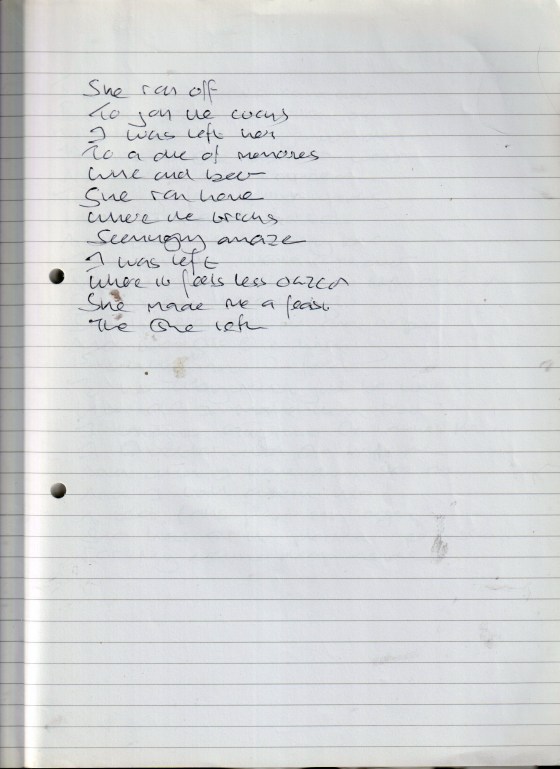 She ran off
To join the
I was left her
To a of memories
wine and beer
She ran home
where the
Seemingly amaze
I was left
where it feels less
She made me a feast
The left